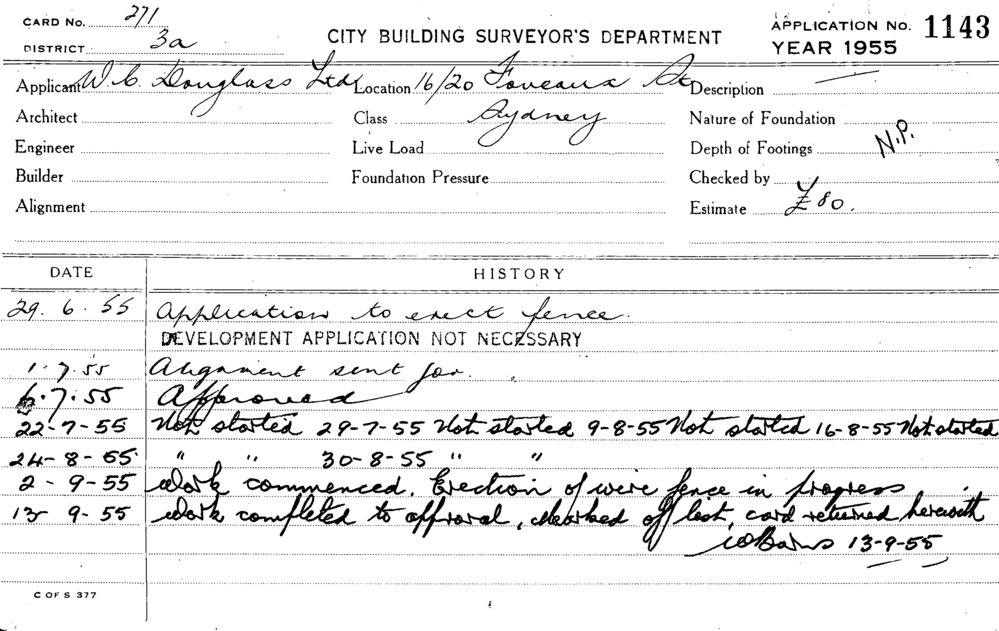 CARD NO. 271
DISTRICT 3a
CITY BUILDING SURVEYOR'S DEPARTMENT
APPLICATION NO. 1143
YEAR 1955
Applicant W. C. Douglass Ltd Location 16/20 Foveaux St Description —
Architect Class Sydney Nature of Foundation
Engineer Live Load Depth of Footings N.P.
Builder Foundation Pressure Checked by
Alignment Estimate £80.
DATE HISTORY
29. 6. 55 Application to erect fence.
DEVELOPMENT APPLICATION NOT NECESSARY
1. 7. 55 Alignment sent for.
6. 7. 55 Approved
22-7-55 Not started 29-7-55 Not started 9-8-55 Not started 16-8-55 Not started
24-8-55 " " 30-8-55 " "
2-9-55 Work commenced. Erection of wire fence in progress
13 9-55 Work completed to approval, marked off last, card returned herewith
13-9-55
C OF S 377